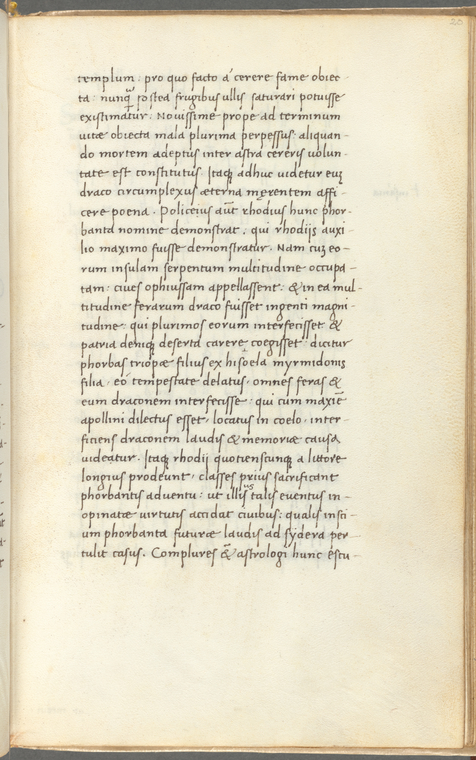 20
templum: pro quo facto á cerere fame obiec-
ta: nunq̃ postea frugibus ullis saturari potuisse
existimatur. Nouissime prope ad terminum
uitæ obiecta mala plurima perpessus: aliquan-
do mortem adeptus inter astra cereris uolun-
tate est constitutus. Itaq; adhuc uidetur eũ
draco circumplexus æterna męrentem affi-
cere poena. Policeius aũt rhodius hunc phor-
banta nomine demonstrat. qui rhodijs auxi-
lio maximo fuisse demonstratur. Nam cuʒ eo-
rum insulam serpentum multitudine occupa-
tam: ciues ophiussam appellassent: & in ea mul-
titudine ferarum draco fuisset ingenti magni-
tudine: qui plurimos eorum interfecisset &
patria deniq; deserta carere coegisset: dicitur
phorbas triopæ filius ex hiscela myrmidonis
filia. eó tempestate delatus. omnes feras &
eum draconem interfecisse: qui cum maxie
apollini dilectus esset, locatus in coelo, inter-
ficiens draconem laudis & memoriæ causa
uideatur. Itaq; rhodij quotienscunq; a littore
longius prodeunt, classes prius sacrificant
phorbantis aduentu: ut illis talis euentus in-
opinatæ uirtutis accidat ciuibus: qualis insci-
um phorbanta futuræ laudis ad sydera per-
tulit casus. Complures &̃ astrologi hunc escu-